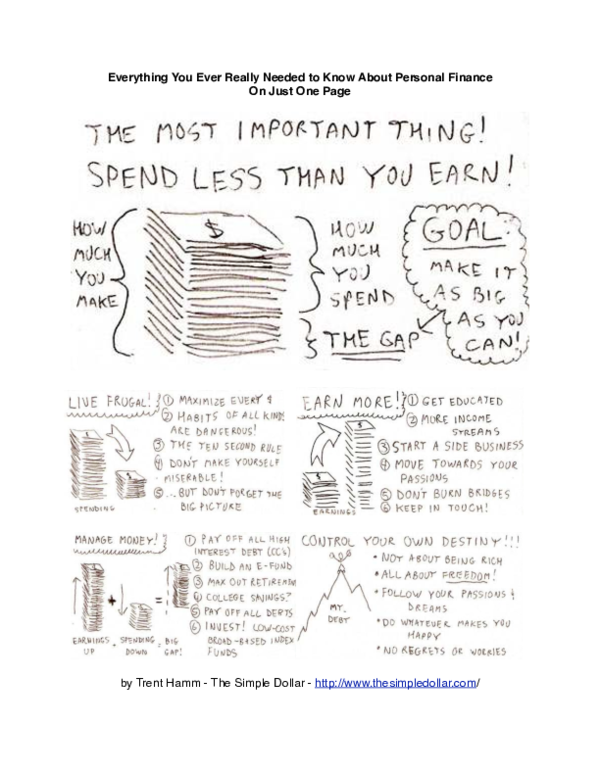 Everything You Ever Really Needed to Know About Personal Finance
On Just One Page
THE MOST IMPORTANT THING!
SPEND LESS THAN YOU EARN!
HOW
MUCH
YOU
MAKE
$
HOW
MUCH
YOU
SPEND
THE GAP
GOAL:
MAKE IT
AS BIG
AS YOU
CAN!
LIVE FRUGAL!
① MAXIMIZE EVERY $
② HABITS OF ALL KIND!
ARE DANGEROUS!
③ THE TEN SECOND RULE
④ DON'T MAKE YOURSELF
MISERABLE!
⑤ ...BUT DON'T FORGET THE
BIG PICTURE
SPENDING
EARN MORE!
① GET EDUCATED
② MORE INCOME
STREAMS
③ START A SIDE BUSINESS
④ MOVE TOWARDS YOUR
PASSIONS
⑤ DON'T BURN BRIDGES
⑥ KEEP IN TOUCH!
EARNINGS
MANAGE MONEY!
① PAY OFF ALL HIGH
INTEREST DEBT (CC'S)
② BUILD AN E-FUND
③ MAX OUT RETIREM
④ COLLEGE SAVINGS?
⑤ PAY OFF ALL DEBTS
⑥ INVEST! LOW-COST
BROAD-BASED INDEX
FUNDS
+ =
EARNINGS UP
SPENDING DOWN
BIG GAP!
CONTROL YOUR OWN DESTINY!!!
• NOT ABOUT BEING RICH
• ALL ABOUT FREEDOM!
• FOLLOW YOUR PASSIONS &
DREAMS
• DO WHATEVER MAKES YOU
HAPPY
• NO REGRETS OR WORRIES
MT.
DEBT
by Trent Hamm - The Simple Dollar - http://www.thesimpledollar.com/